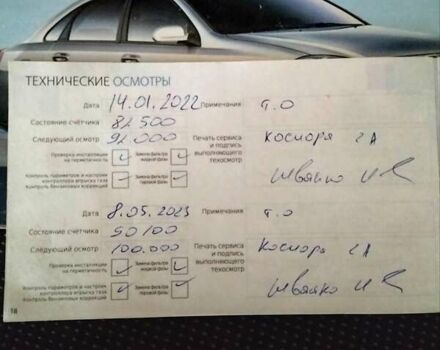 ТЕХНИЧЕСКИЕ ОСМОТРЫ
Дата 14.01.2022 Примечания Т.О
Состояние счётчика 82 500
Следующий осмотр 92.000 Печать сервиса и подпись выполняющего техосмотр Косиора 2А
Проверка инсталляции на герметичность Замена фильтра жидкой фазы
Контроль параметров и настроек контроллера впрыска газа Контроль бензиновых коррекций Замена фильтра паровой фазы
Дата 8.05.2023 Примечания Т.О
Состояние счётчика 90100
Следующий осмотр 100.000 Печать сервиса и подпись выполняющего техосмотр Косиора 2А
Проверка инсталляции на герметичность Замена фильтра жидкой фазы
Контроль параметров и настроек контроллера впрыска газа Контроль бензиновых коррекций Замена фильтра паровой фазы
18